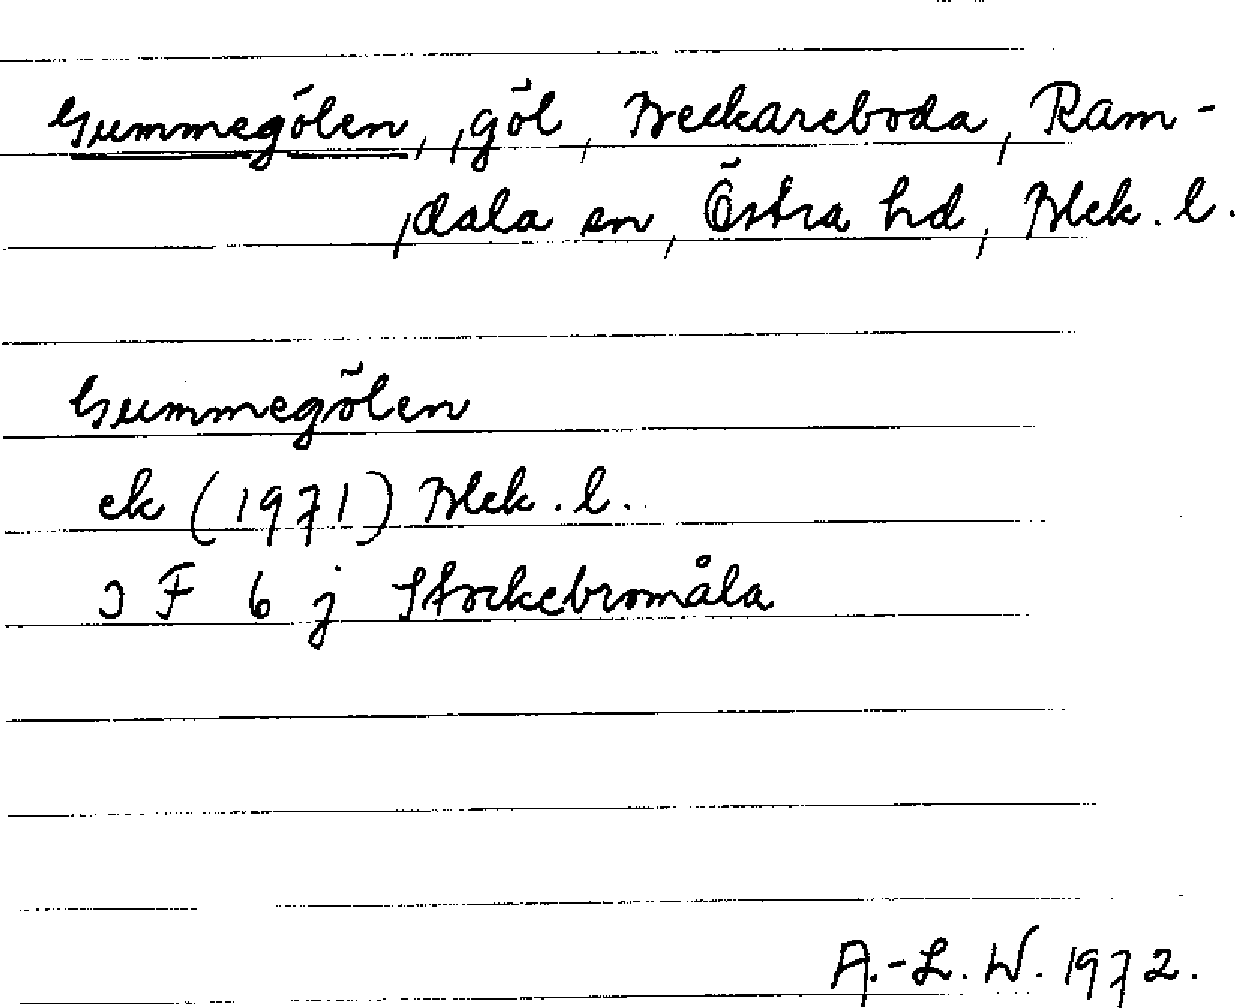 Gummegölen, göl, Beckareboda, Ram-
dala sn, Östra hd, Blek. l.
Gummegölen
ek (1971) Blek. l.
3 F 6 j Stockebromåla
A.-L. W. 1972.